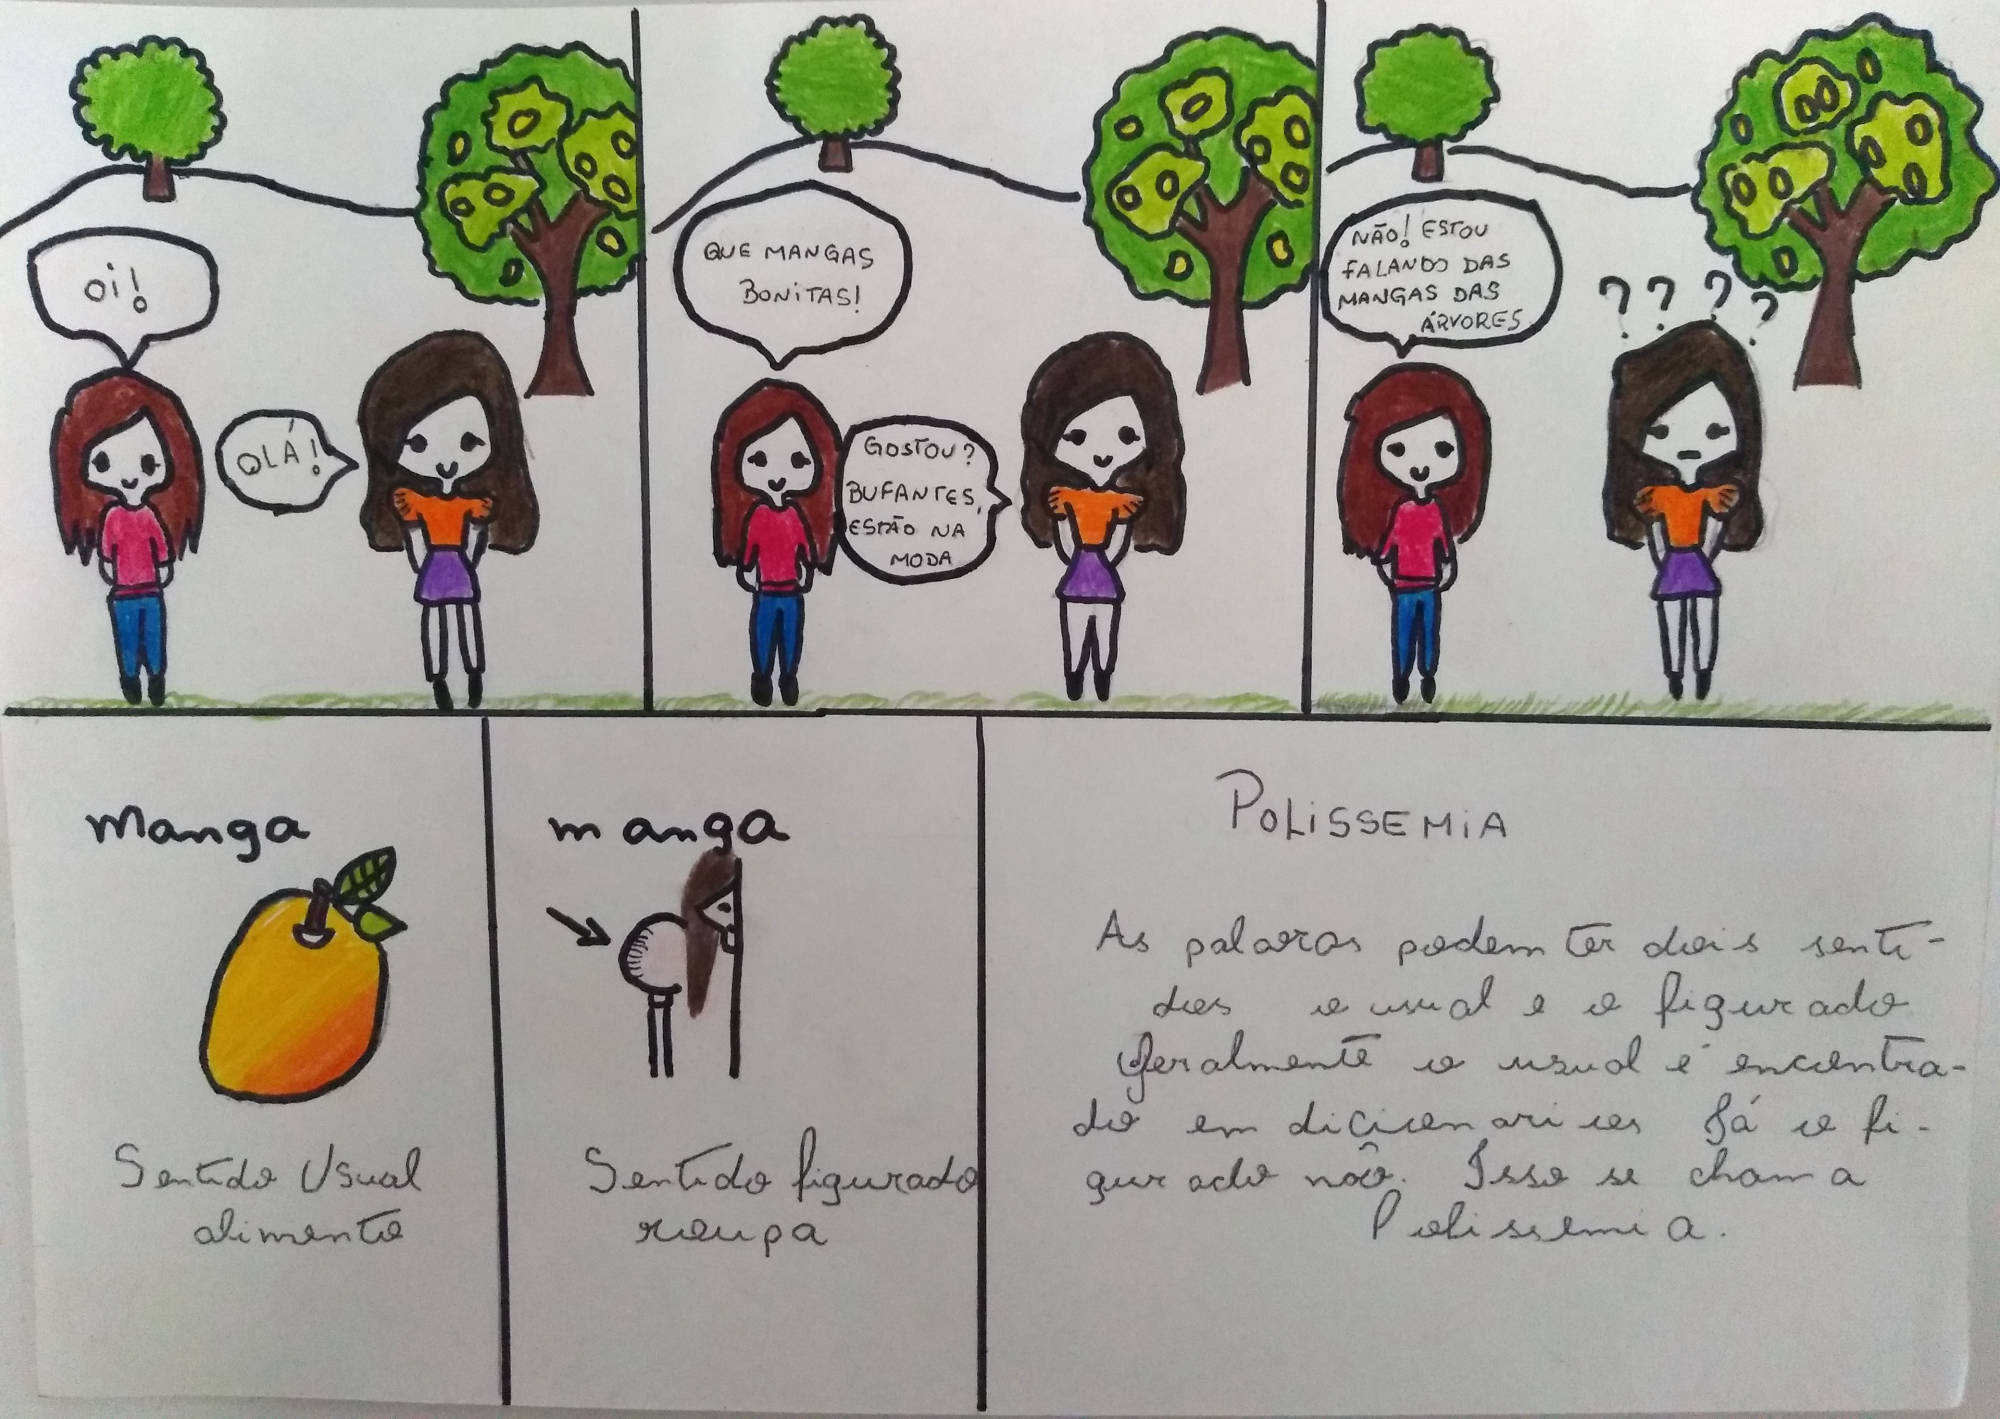 Oi!
OLÁ!
QUE MANGAS
BONITAS!
GOSTOU?
BUFANTES,
ESTÃO NA
MODA
NÃO! ESTOU
FALANDO DAS
MANGAS DAS
ÁRVORES
? ? ? ?
Manga
Sentido Usual
alimento
manga
Sentido figurado
roupa
POLISSEMIA
As palavras podem ter dois senti-
dos o usual e o figurado
Geralmente o usual é encontra-
do em dicionarios Já o fi-
gurado não. Isso se chama
Polissemia.